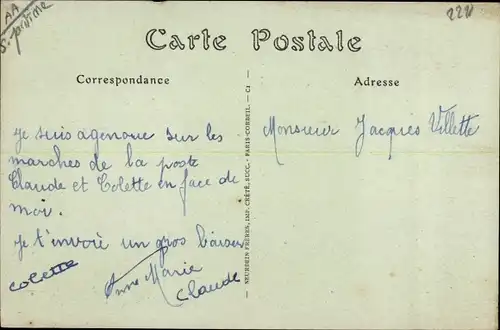 AA
S. pristine
2221
Carte Postale
Correspondance
Adresse
je suis agenoue sur les
marches de la poste
Claude et Colette en face de
moi.
je t'envoie un gros baiser
colette
Anne Marie
Claude
NEURDEIN FRÈRES, IMP. CRÉTÉ, SUCC. - PARIS-CORBEIL. - C1
Monsieur Jacques Villette